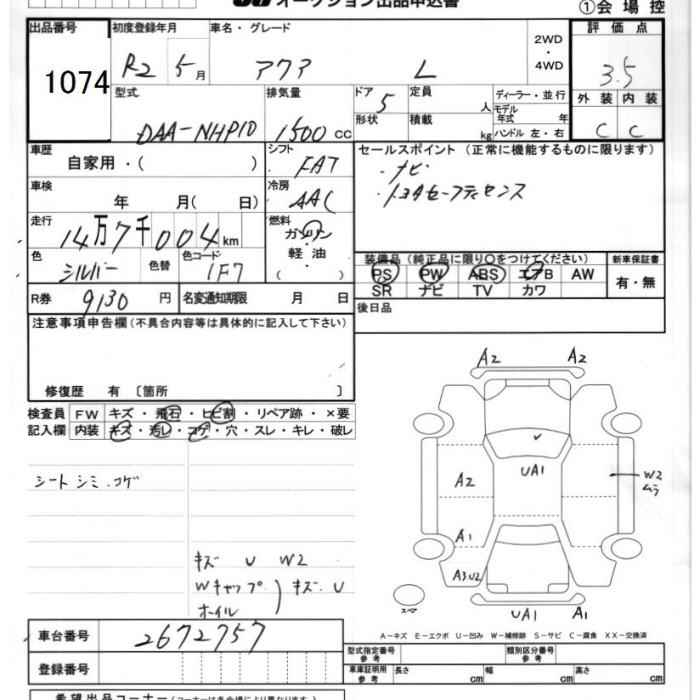 オークション出品申込書
①会場控
出品番号 初度登録年月 車名・グレード 評価点
1074 R2 5月 アクア L 2WD・4WD 3.5
型式 排気量 ドア 定員 ディーラー・並行 外装 内装
DAA-NHP10 1500cc 5 人 モデル年式 年 C C
形状 積載 kg ハンドル 左・右
車歴 シフト セールスポイント (正常に機能するものに限ります)
自家用・( ) FAT ・ナビ
車検 冷房 ・トヨタセーフティセンス
年 月( 日) AAC
走行 燃料
14万7千004km ガソリン・軽油( )
色 色替 色コード 装備品 (純正品に限り○をつけてください) 新車保証書
シルバー 1F7 PS PW ABS エアB AW 有・無
SR ナビ TV カワ
R券 9130円 名変通知期限 月 日 後日品
注意事項申告欄(不具合内容等は具体的に記入して下さい)
修復歴 有 〔箇所 〕
検査員 FW キズ・飛石・ヒビ割・リペア跡・×要
記入欄 内装 キズ・汚レ・コゲ・穴・スレ・キレ・破レ
シート シミ.コゲ
キズ U W2
Wキャップ キズ U
ホイル
A2 A2
UA1
A2 W2
ムラ
A1
A3U2
スペア
UA1 A1
A-キズ E-エクボ U-凹み W-補修跡 S-サビ C-腐食 XX-交換済
車台番号 2672757
型式指定番号 参考 類別区分番号 参考
登録番号 車庫証明用 参考 長さ cm 幅 cm 高さ cm
希望出品コーナー